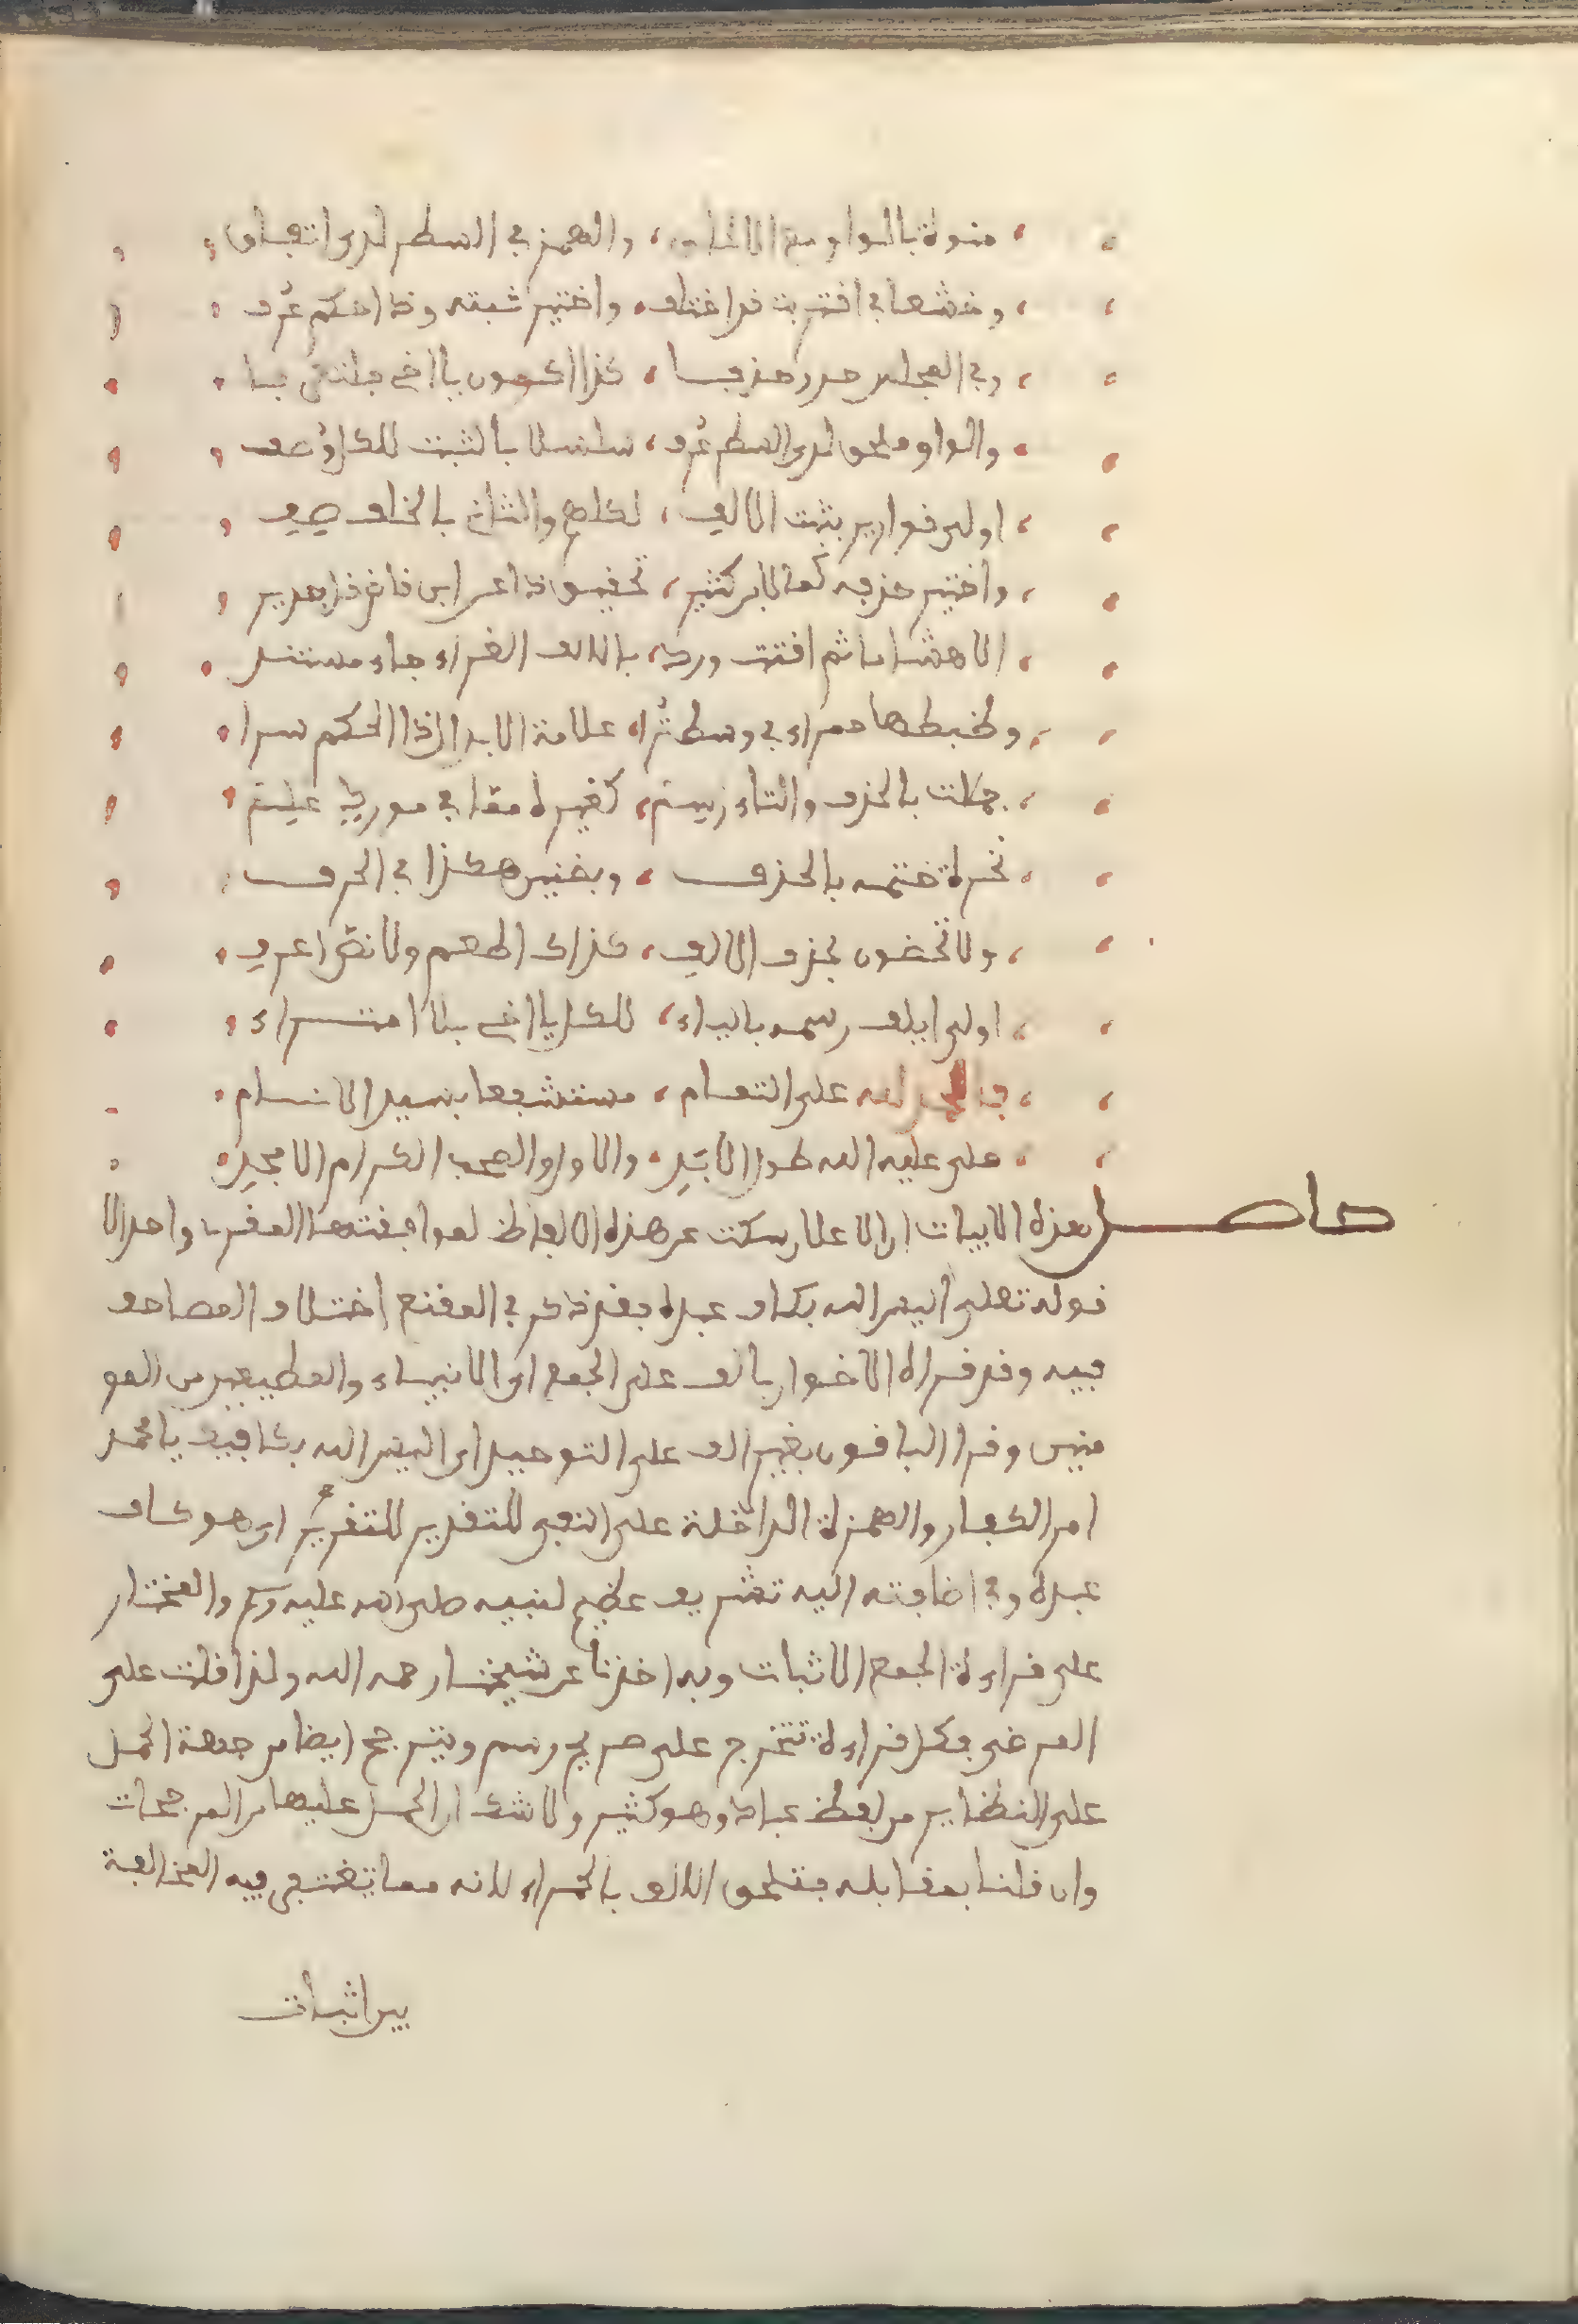 منوة بالواو مع الالحاف، والهمز في السطر لدى اتفاق
وخشعا في اقتربت قد اختلف، واختير ثبته وذا حكم عرف
وفي المجلس حدر حذفا، كذا اكمون يا اخي فلتعرفا
والواو ملحق لدى السطر عرف، سلسلا بالثبت للكل وصف
اولى قوارير بثبت الالف، لكلهم والثان بالخلف صف
واختير حذفه كما لابن كثير، تحقيق ذا عن ابن غازي قد
الا هشاما ثم افتت ورد، بالالف الغراء جاء مستند
وضبطها حمراء في وسط ترا، علامة الابدال ذا الحكم سرا
جملت بالحذف والتاء زسم، كغيره معا في مورد علم
نخرة ختمه بالحذف، وبضنين هكذا في الحرف
ولا تحضون بحذف الالف، كذاك اطعم ولا نقص اعرف
اولى ايلف رسمه بالياء، للكل يا اخي بلا امتراء
فالحمد لله على التمام، مستشفعا بسيد الانام
صلى عليه الله طول الابد، والال والصحب الكرام الامجد
حاصل هذه الابيات ان الاعلان سكت عن هذه الالفاظ لموافقتها المقرء واحد الا
قوله تعلى اليس الله بكاف عبده فقد ذكر في المقنع اختلاف المصاحف
فيه وقد قراه الاخوان بالف على الجمع اي الانبياء والمطيعين من المو
منين وقرا الباقون بغير الف على التوحيد اي اليس الله بكافيك يا محمد
امر الكفار والهمزة الداخلة على النفي للتقدير للتقرير اي هو كاف
عبده وفي اضافته اليه تشريف عظيم لنبيه صلى الله عليه وسلم والمختار
على قراءة الجمع الاثبات وبه اخذنا عن شيخنا رحمه الله ولذا قلت على
المرضي فكل قراءة تتخرج على صريح رسم ويترجح ايضا من جهة الحمل
على النظاير من لفظ عباد وهو كثير ولا شك ان الحمل عليها من المرجحات
وان قلنا بمقابله فتلحق الالف بالحمراء لانه مما تغتفر فيه المخالفة
بين اثبات